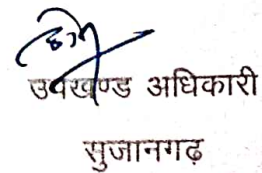 उपखण्ड अधिकारी
सुजानगढ़